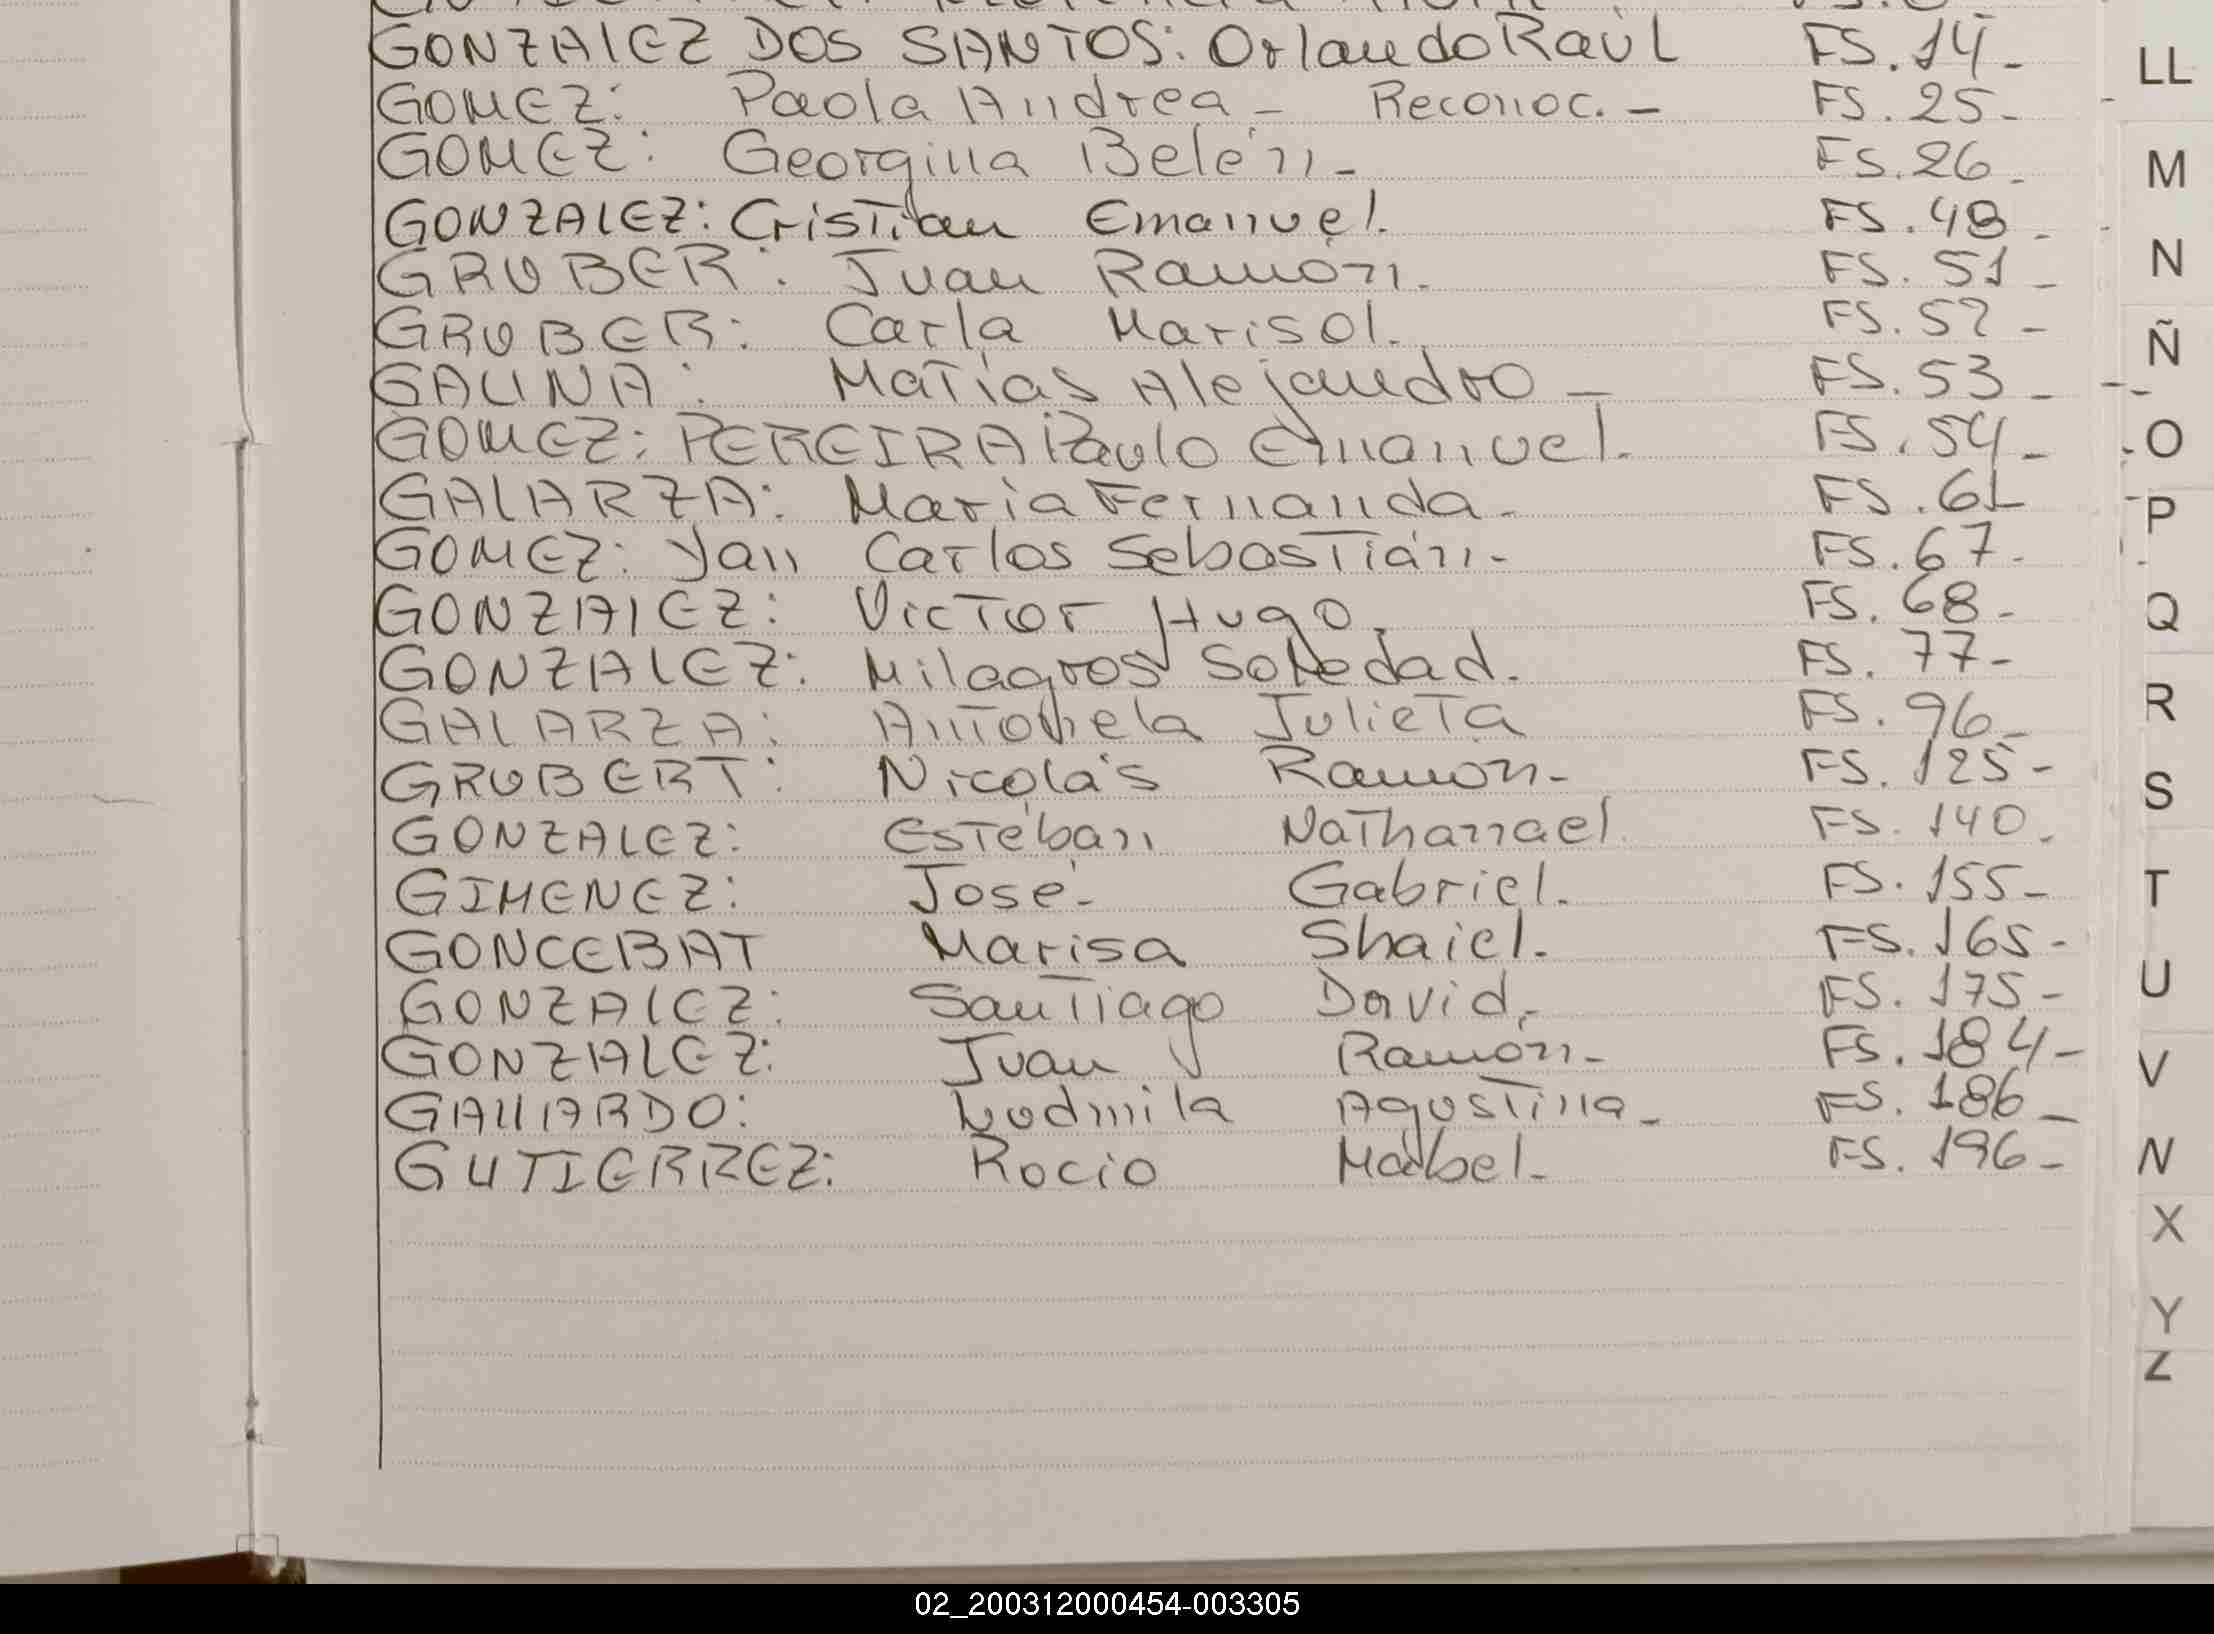 GONZALEZ DOS SANTOS: Orlando Raúl FS. 14-
GOMEZ: Paola Andrea - Reconoc. - FS. 25-
GOMEZ: Georgina Belén - FS. 26-
GONZALEZ: Cristian Emanuel. FS. 48-
GRUBER: Juan Ramón. FS. 51-
GRUBER: Carla Marisol. FS. 52-
GALINA: Matías Alejandro - FS. 53-
GOMEZ: PEREIRA Paulo Emanuel. FS. 54-
GALARZA: María Fernanda. FS. 61
GOMEZ: Yan Carlos Sebastián- FS. 67-
GONZALEZ: Victor Hugo. FS. 68-
GONZALEZ: Milagros Soledad. FS. 77-
GALARZA: Antonela Julieta FS. 96-
GRUBERT: Nicolás Ramón- FS. 125-
GONZALEZ: Estéban Nathanael. FS. 140.
GIMENEZ: José- Gabriel. FS. 155-
GONCEBAT Marisa Shaiel. FS. 165-
GONZALEZ: Santiago David,- FS. 175-
GONZALEZ: Juan Ramón- FS. 184-
GALLARDO: Ludmila Agustina- FS. 186-
GUTIERREZ: Rocio Mabel- FS. 196-
LL
M
N
Ñ
O
P
Q
R
S
T
U
V
N
X
Y
Z
02_200312000454-003305